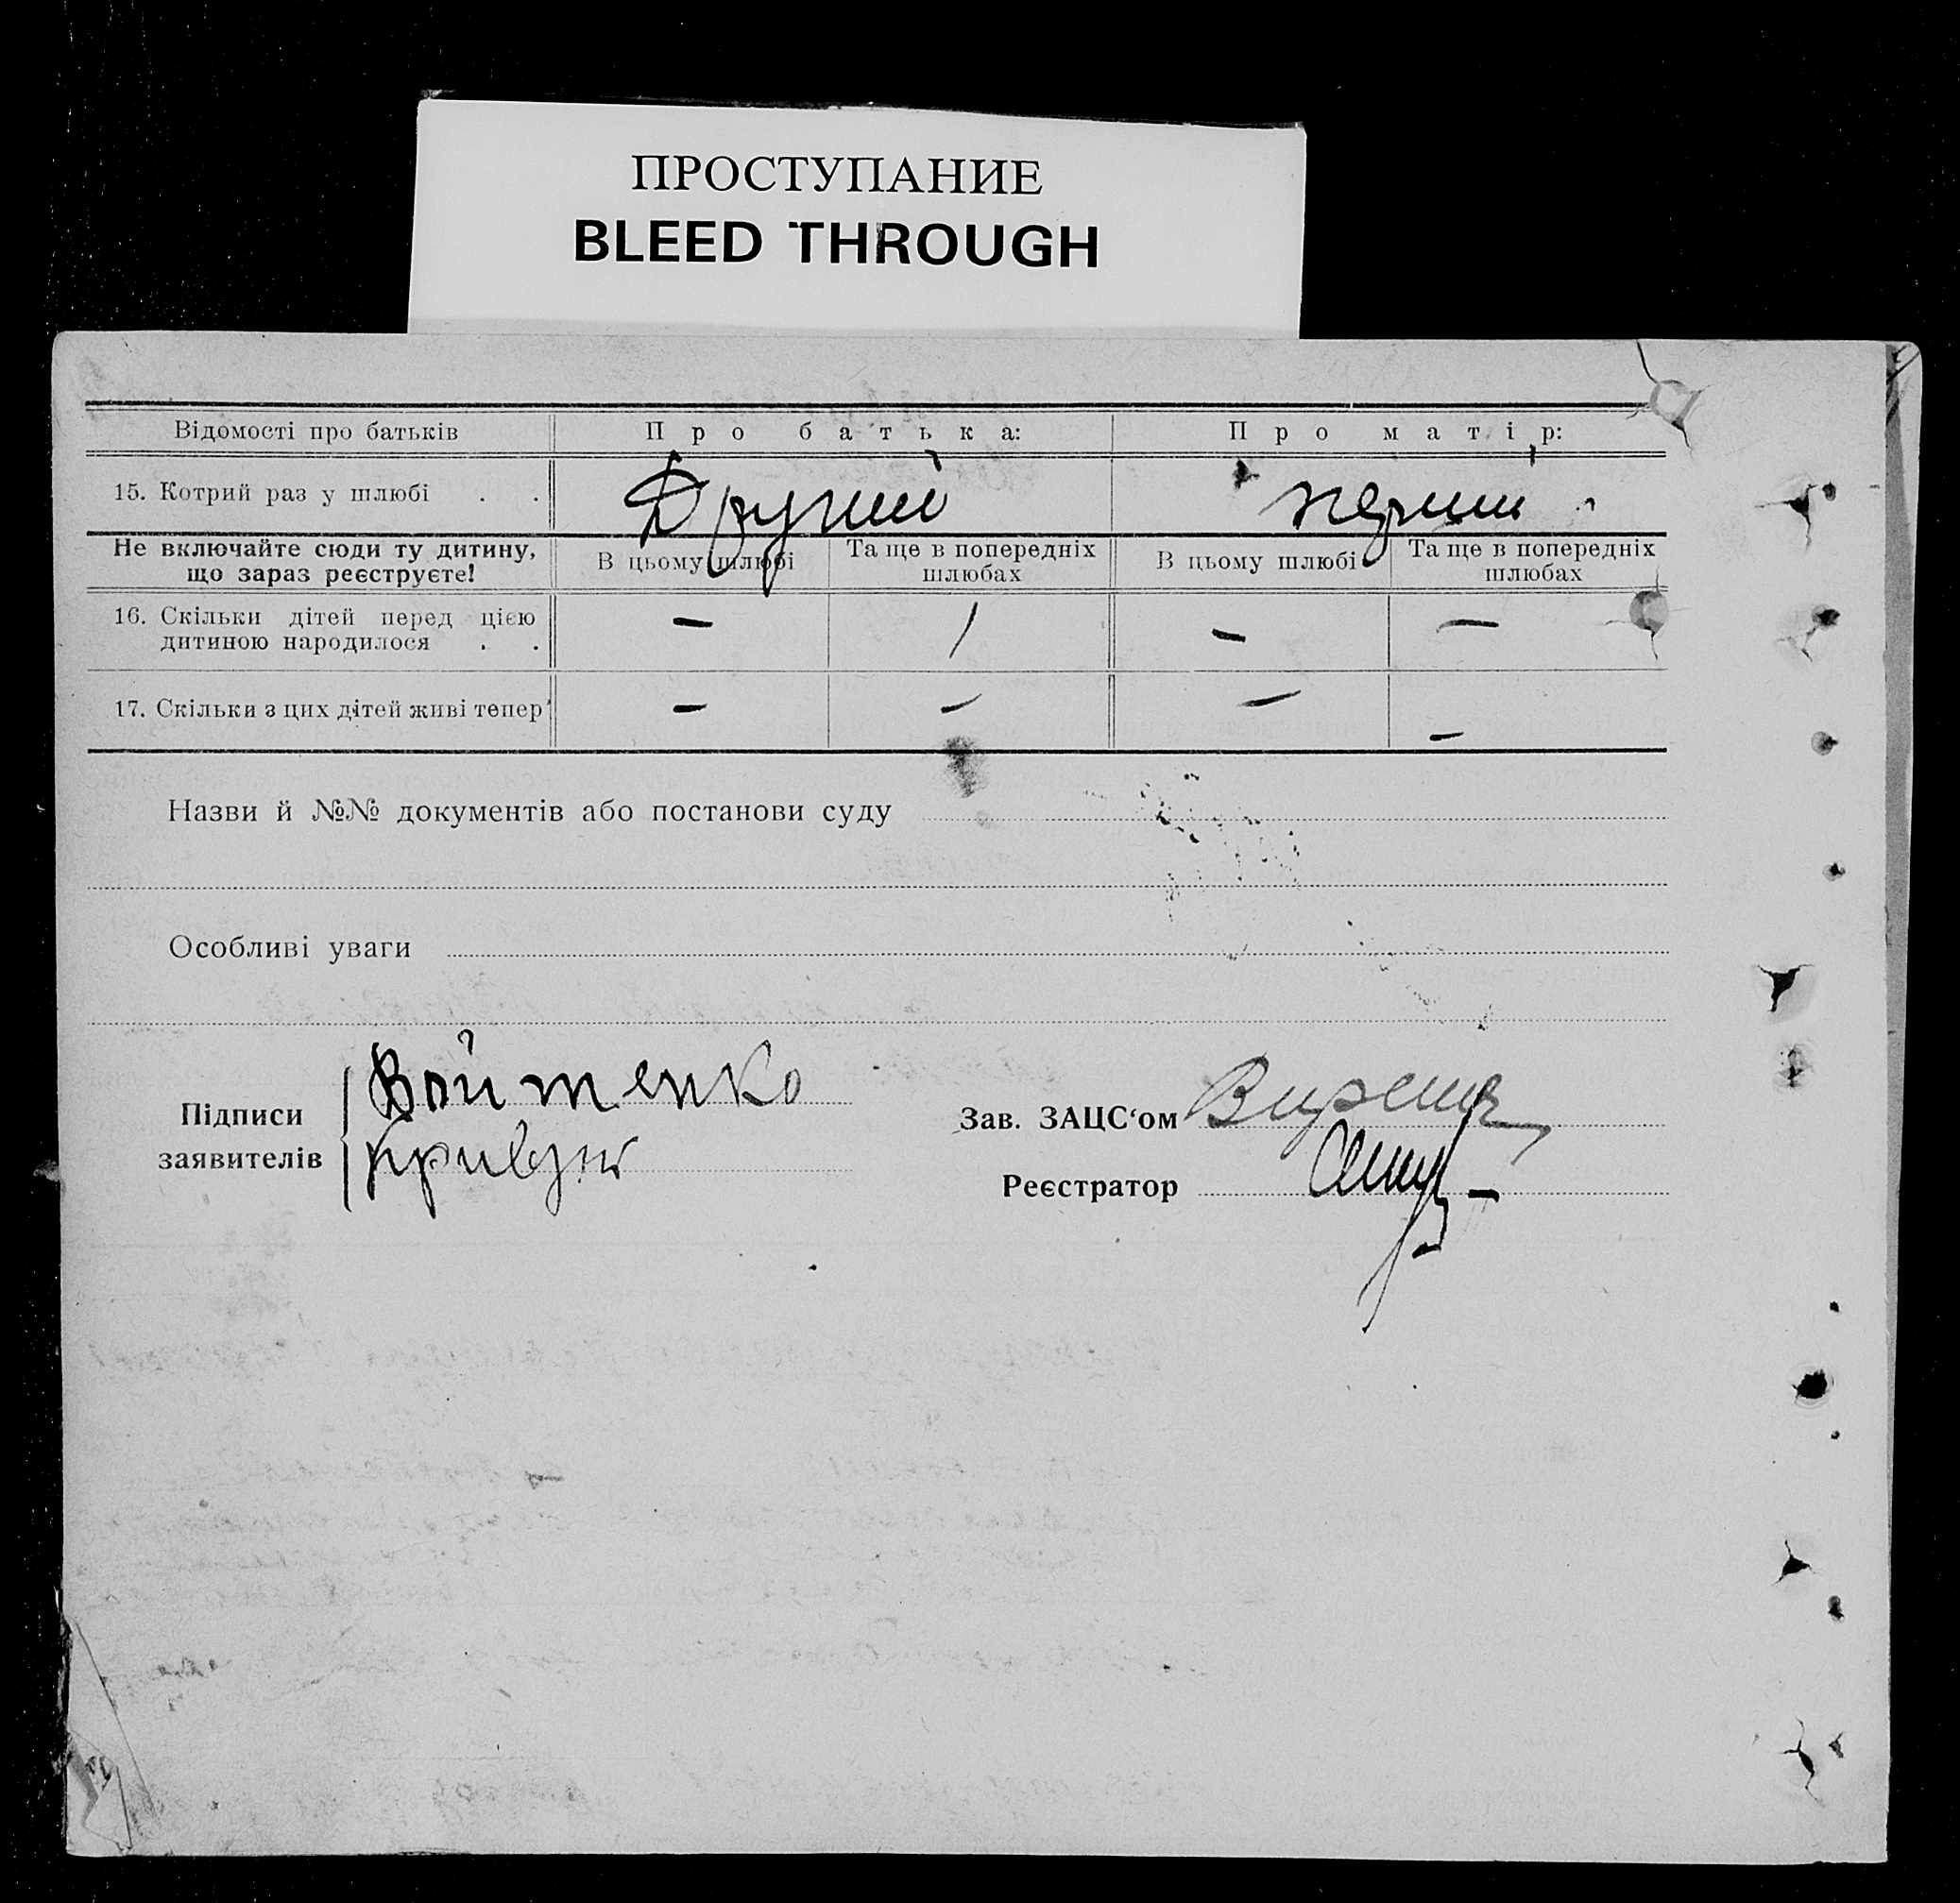 ПРОСТУПАНИЕ
BLEED THROUGH
Відомості про батьків Про батька: Про матір:
15. Котрий раз у шлюбі . . Другий перший
Не включайте сюди ту дитину, що зараз реєструєте! В цьому шлюбі Та ще в попередніх шлюбах В цьому шлюбі Та ще в попередніх шлюбах
16. Скільки дітей перед цією дитиною народилося . . — 1 — —
17. Скільки з цих дітей живі тепер — — — —
Назви й №№ документів або постанови суду
Особливі уваги
Підписи заявителів
Войтенко
Зав. ЗАЦС‘ом
Реєстратор